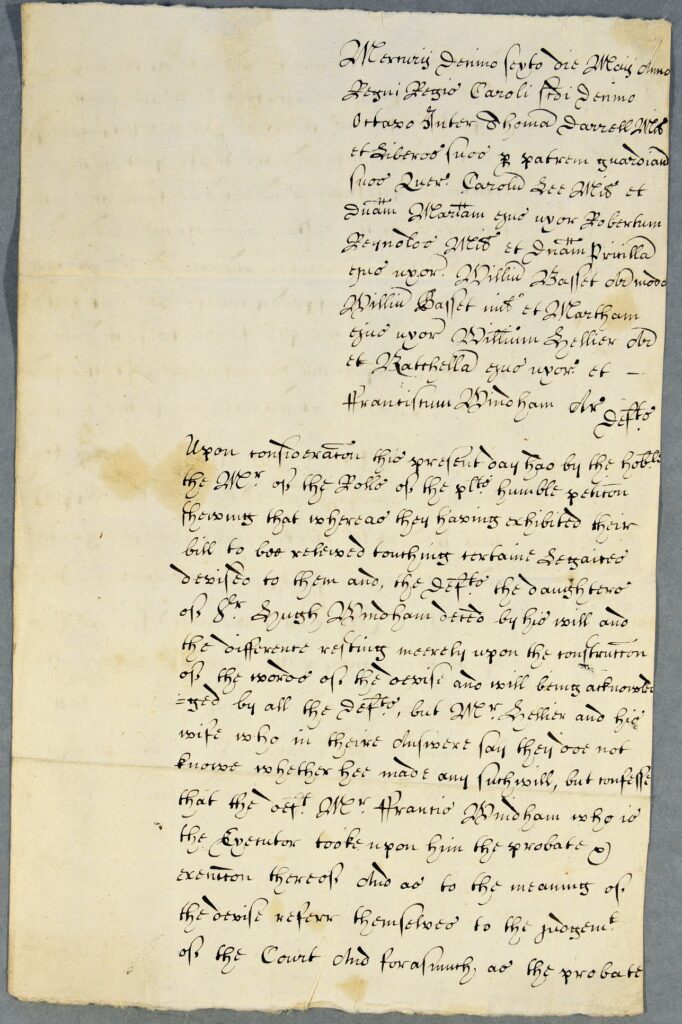 Mercurij Decimo sexto die Maij Anno
Regni Regis Caroli scdi Decimo
Octavo Inter Thomã Darrell Mil
et Liberos suos p patrem guardian
suos Quer. Carolũ Lee Mil et
Dnam Martam ejus uxor Robertum
Reynolds Mil et Dnam Pricillã
ejus uxor. Williũ Basset
Williũ Basset et Martham
ejus uxor Willium Hellier
et Ratchellã ejus uxor et –
ffranciscum Windham Ar Defts
Upon consideracon this present day had by the hoble
the Mr. of the Rolls of the plts humble peticon
shewing that whereas they having exhibited their
bill to bee releived touching certaine Legacies
devised to them and, the Defts the daughters
of Sr. Hugh Windham deced by his will and
the difference resting meerely upon the construccon
of the words of the devise and will being acknowled
=ged by all the Defts, but Mr. Hellier and his
wife who in theire Answere say they doe not
knowe whether hee made any such will, but confesse
that the deft Mr. ffrancis Windham who is
the Executor tooke upon him the probate &
execucon thereof And as to the meaning of
the devise referr themselves to the Judgemt
of the Court And forasmuch, as the probate